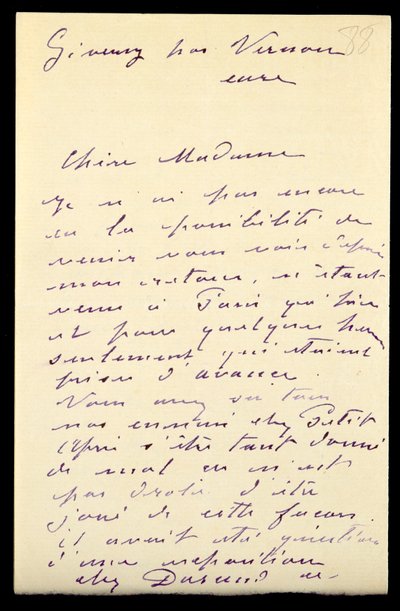 Giverny par Vernon
88
eure
Chère Madame
Je n'ai pas encore
eu la possibilité de
venir vous voir depuis
mon retour, n'étant
venu à Paris qu'hier
et pour quelques heures
seulement qui étaient
prises d'avance.
Vous avez su tous
nos ennuis chez Petit
après s'être tant donné
de mal ce n'est
pas drole d'être
joué de cette façon.
il avait été question
d'une exposition
chez Durand de